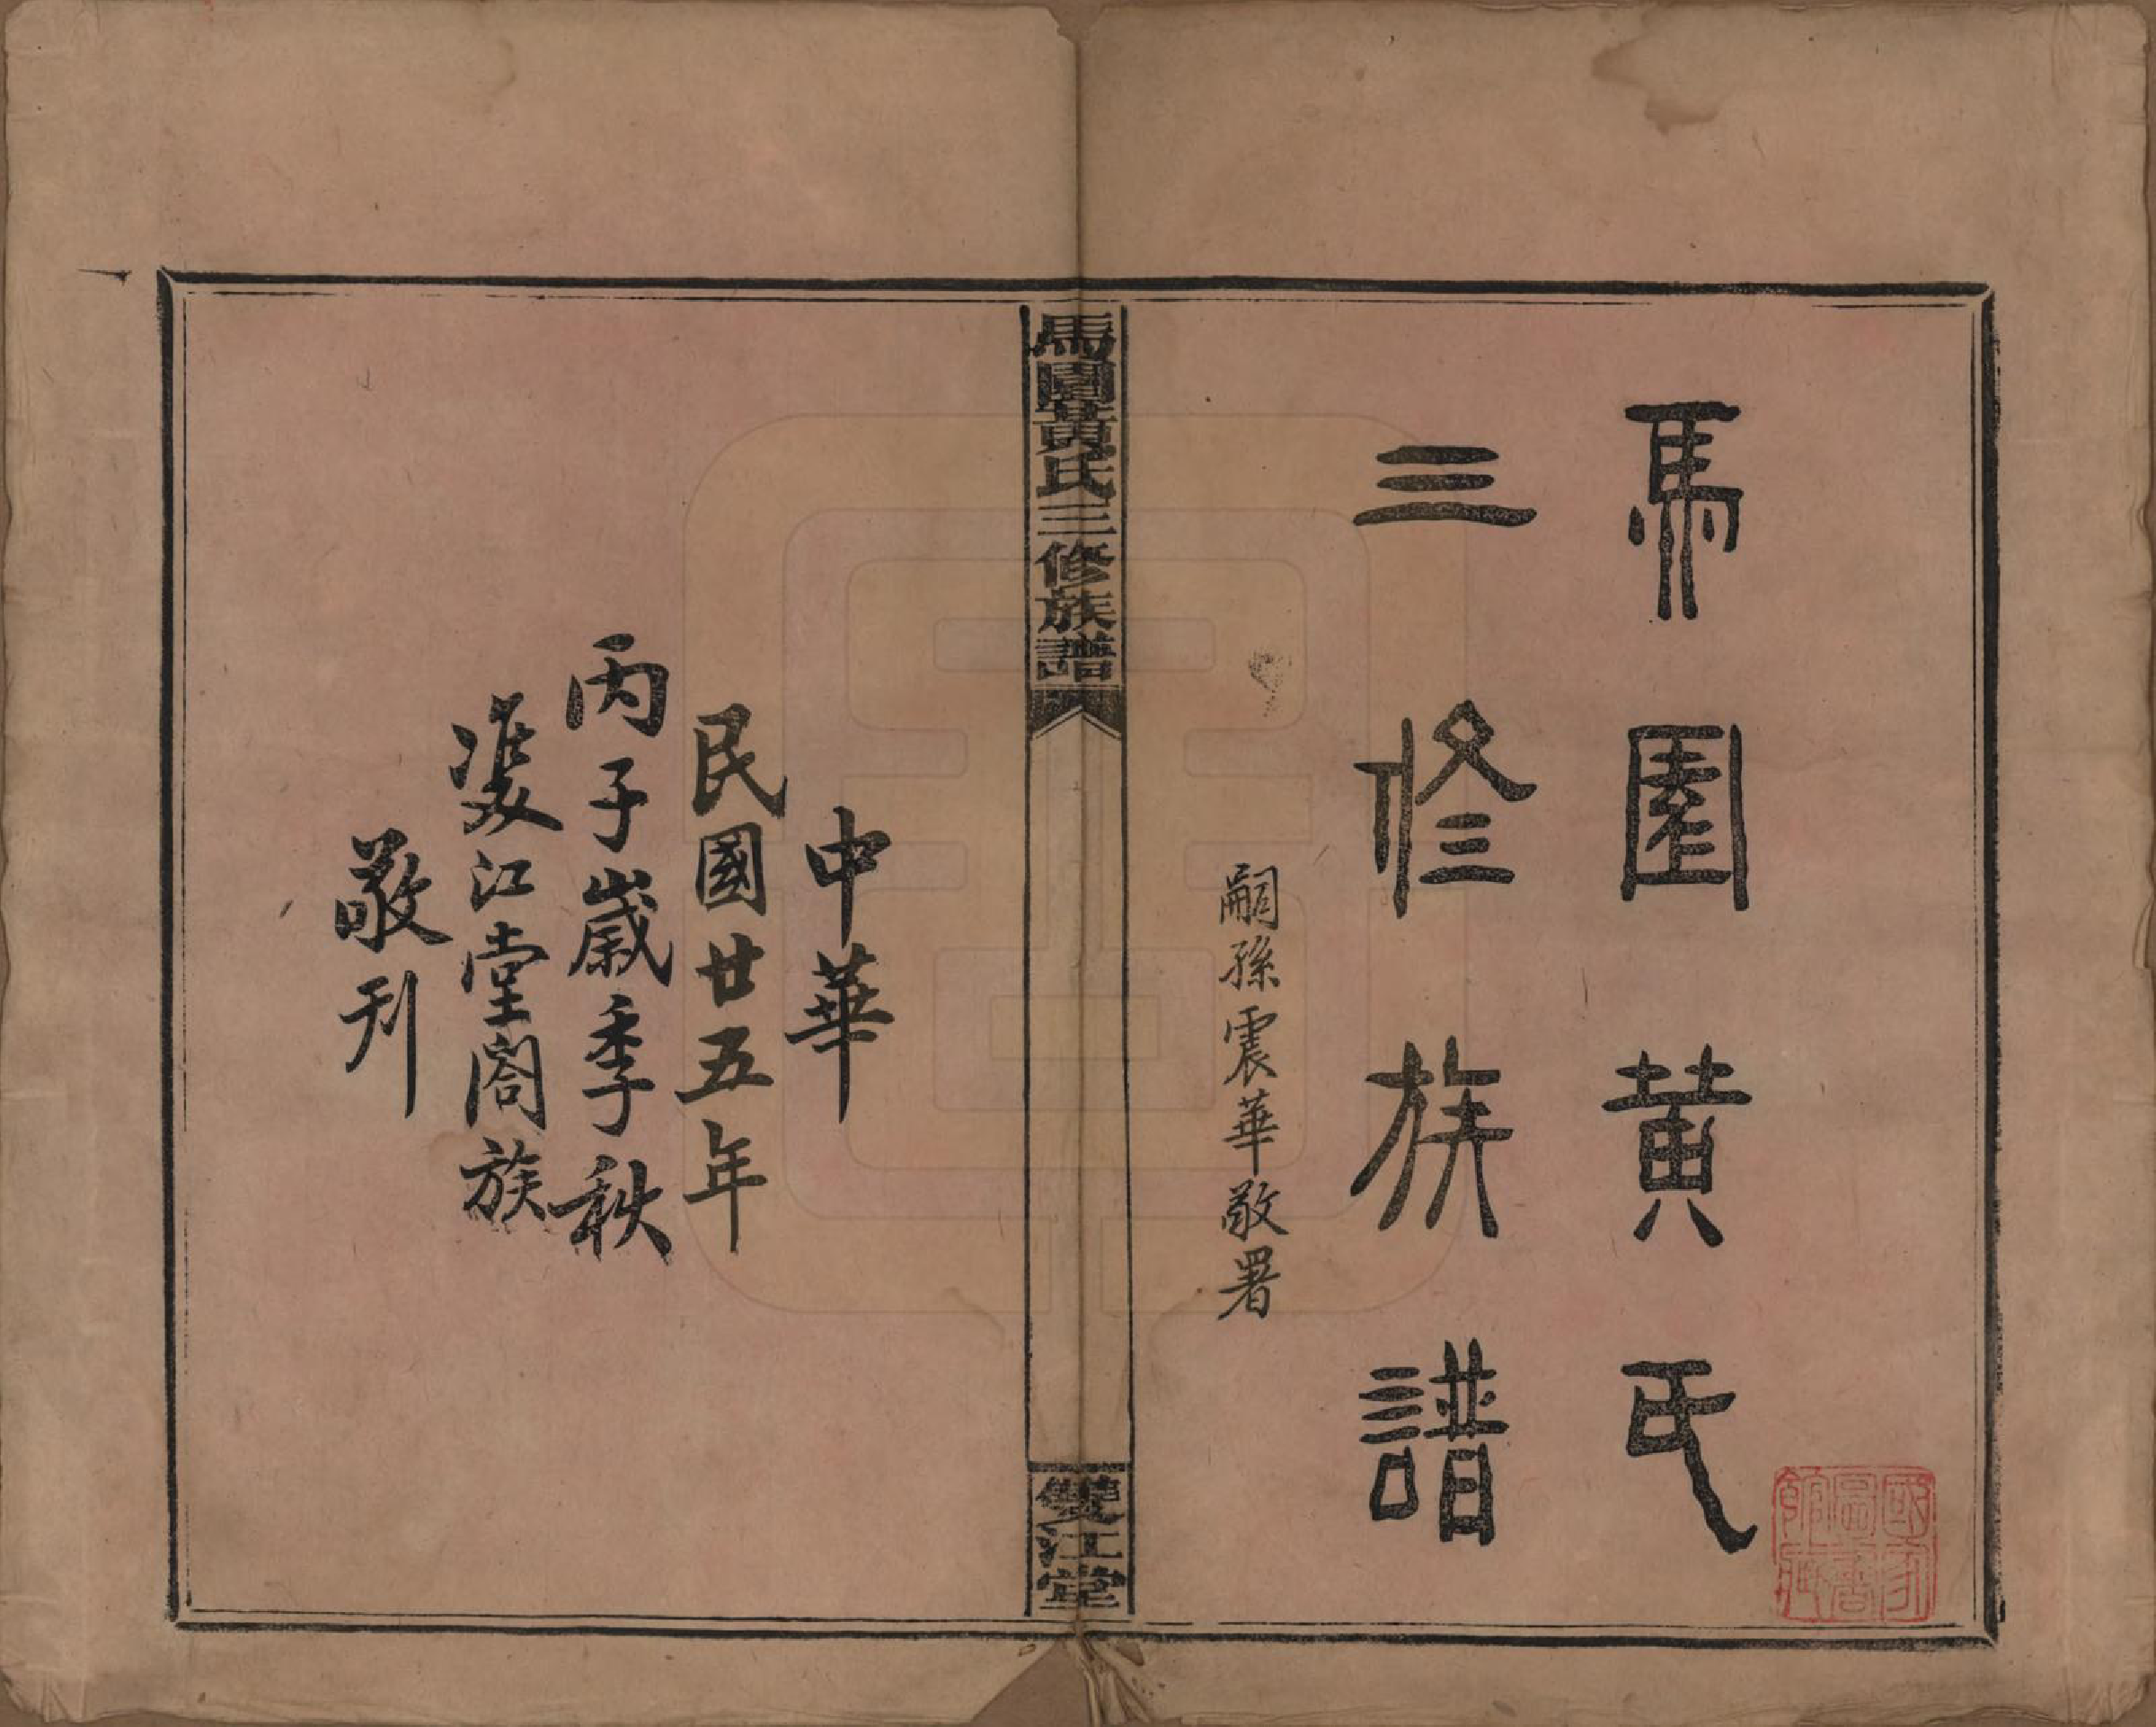 馬園黃氏
三修族譜
嗣孫震華敬署
國家圖書館藏
馬園黃氏三修族譜
雙江堂
中華
民國廿五年
丙子歲季秋
雙江堂闔族
敬刊